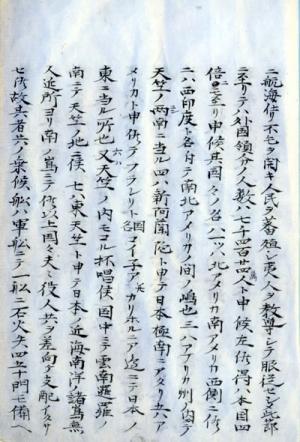 ニ航海仕リ不毛ヲ開キ人民ヲ蕃殖シ夷人ヲ教導シテ服従ハシ此節
ニ至リテハ外国領分ノ人数ハ七千四百廿万人ト申候左候得ハ本国四
倍ニ至リ申候其国々ノ名ハ一ツハ北アメリカ南アメリカ西側ニ御
二ハ西印度ト名付テ南北アメリカノ間ノ嶋也三ハアフリカ州内
天竺ノ西南ニ当ル四ハ新阿蘭陀ト申テ日本極南ニアタリ五ハア
メリカト申候テアフレリト国マイチアカリホルニア迄ニテ日本ノ
東ニ当ル所也又六天竺ノ内モゴル杯唱候国中ニテ雲南暹羅ノ
南ニテ天竺ノ地ニ候七ハ東天竺ト申テ日本近海南洋諸嶌無
人近所ヨリ南ノ嶌ニテ候以上国々夫々役人共ヲ差向ケ支配ナサシ
七候故其者共ノ乗候船ハ軍船ニテ一船ニ石火矢四五十門モ備ヘ